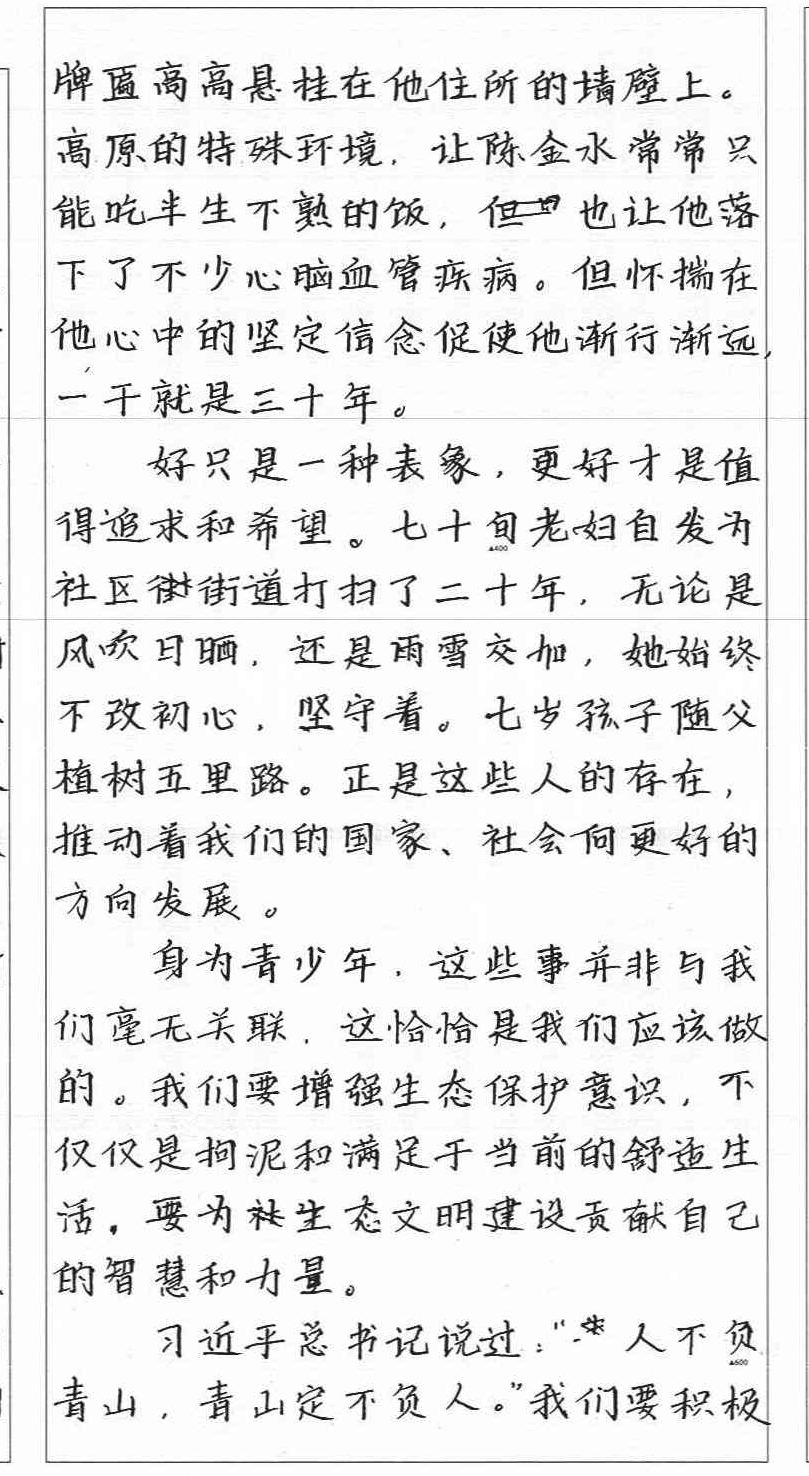 牌匾高高悬挂在他住所的墙壁上。
高原的特殊环境，让陈金水常常只
能吃半生不熟的饭，但也让他落
下了不少心脑血管疾病。但怀揣在
他心中的坚定信念促使他渐行渐远，
一干就是三十年。
好只是一种表象，更好才是值
得追求和希望。七十旬老妇自发为
▲400
社区街道打扫了二十年，无论是
风吹日晒，还是雨雪交加，她始终
不改初心，坚守着。七岁孩子随父
植树五里路。正是这些人的存在，
推动着我们的国家、社会向更好的
方向发展。
身为青少年，这些事并非与我
们毫无关联，这恰恰是我们应该做
的。我们要增强生态保护意识，不
仅仅是拘泥和满足于当前的舒适生
活，要为生态文明建设贡献自己
的智慧和力量。
习近平总书记说过：“人不负
▲600
青山，青山定不负人。”我们要积极